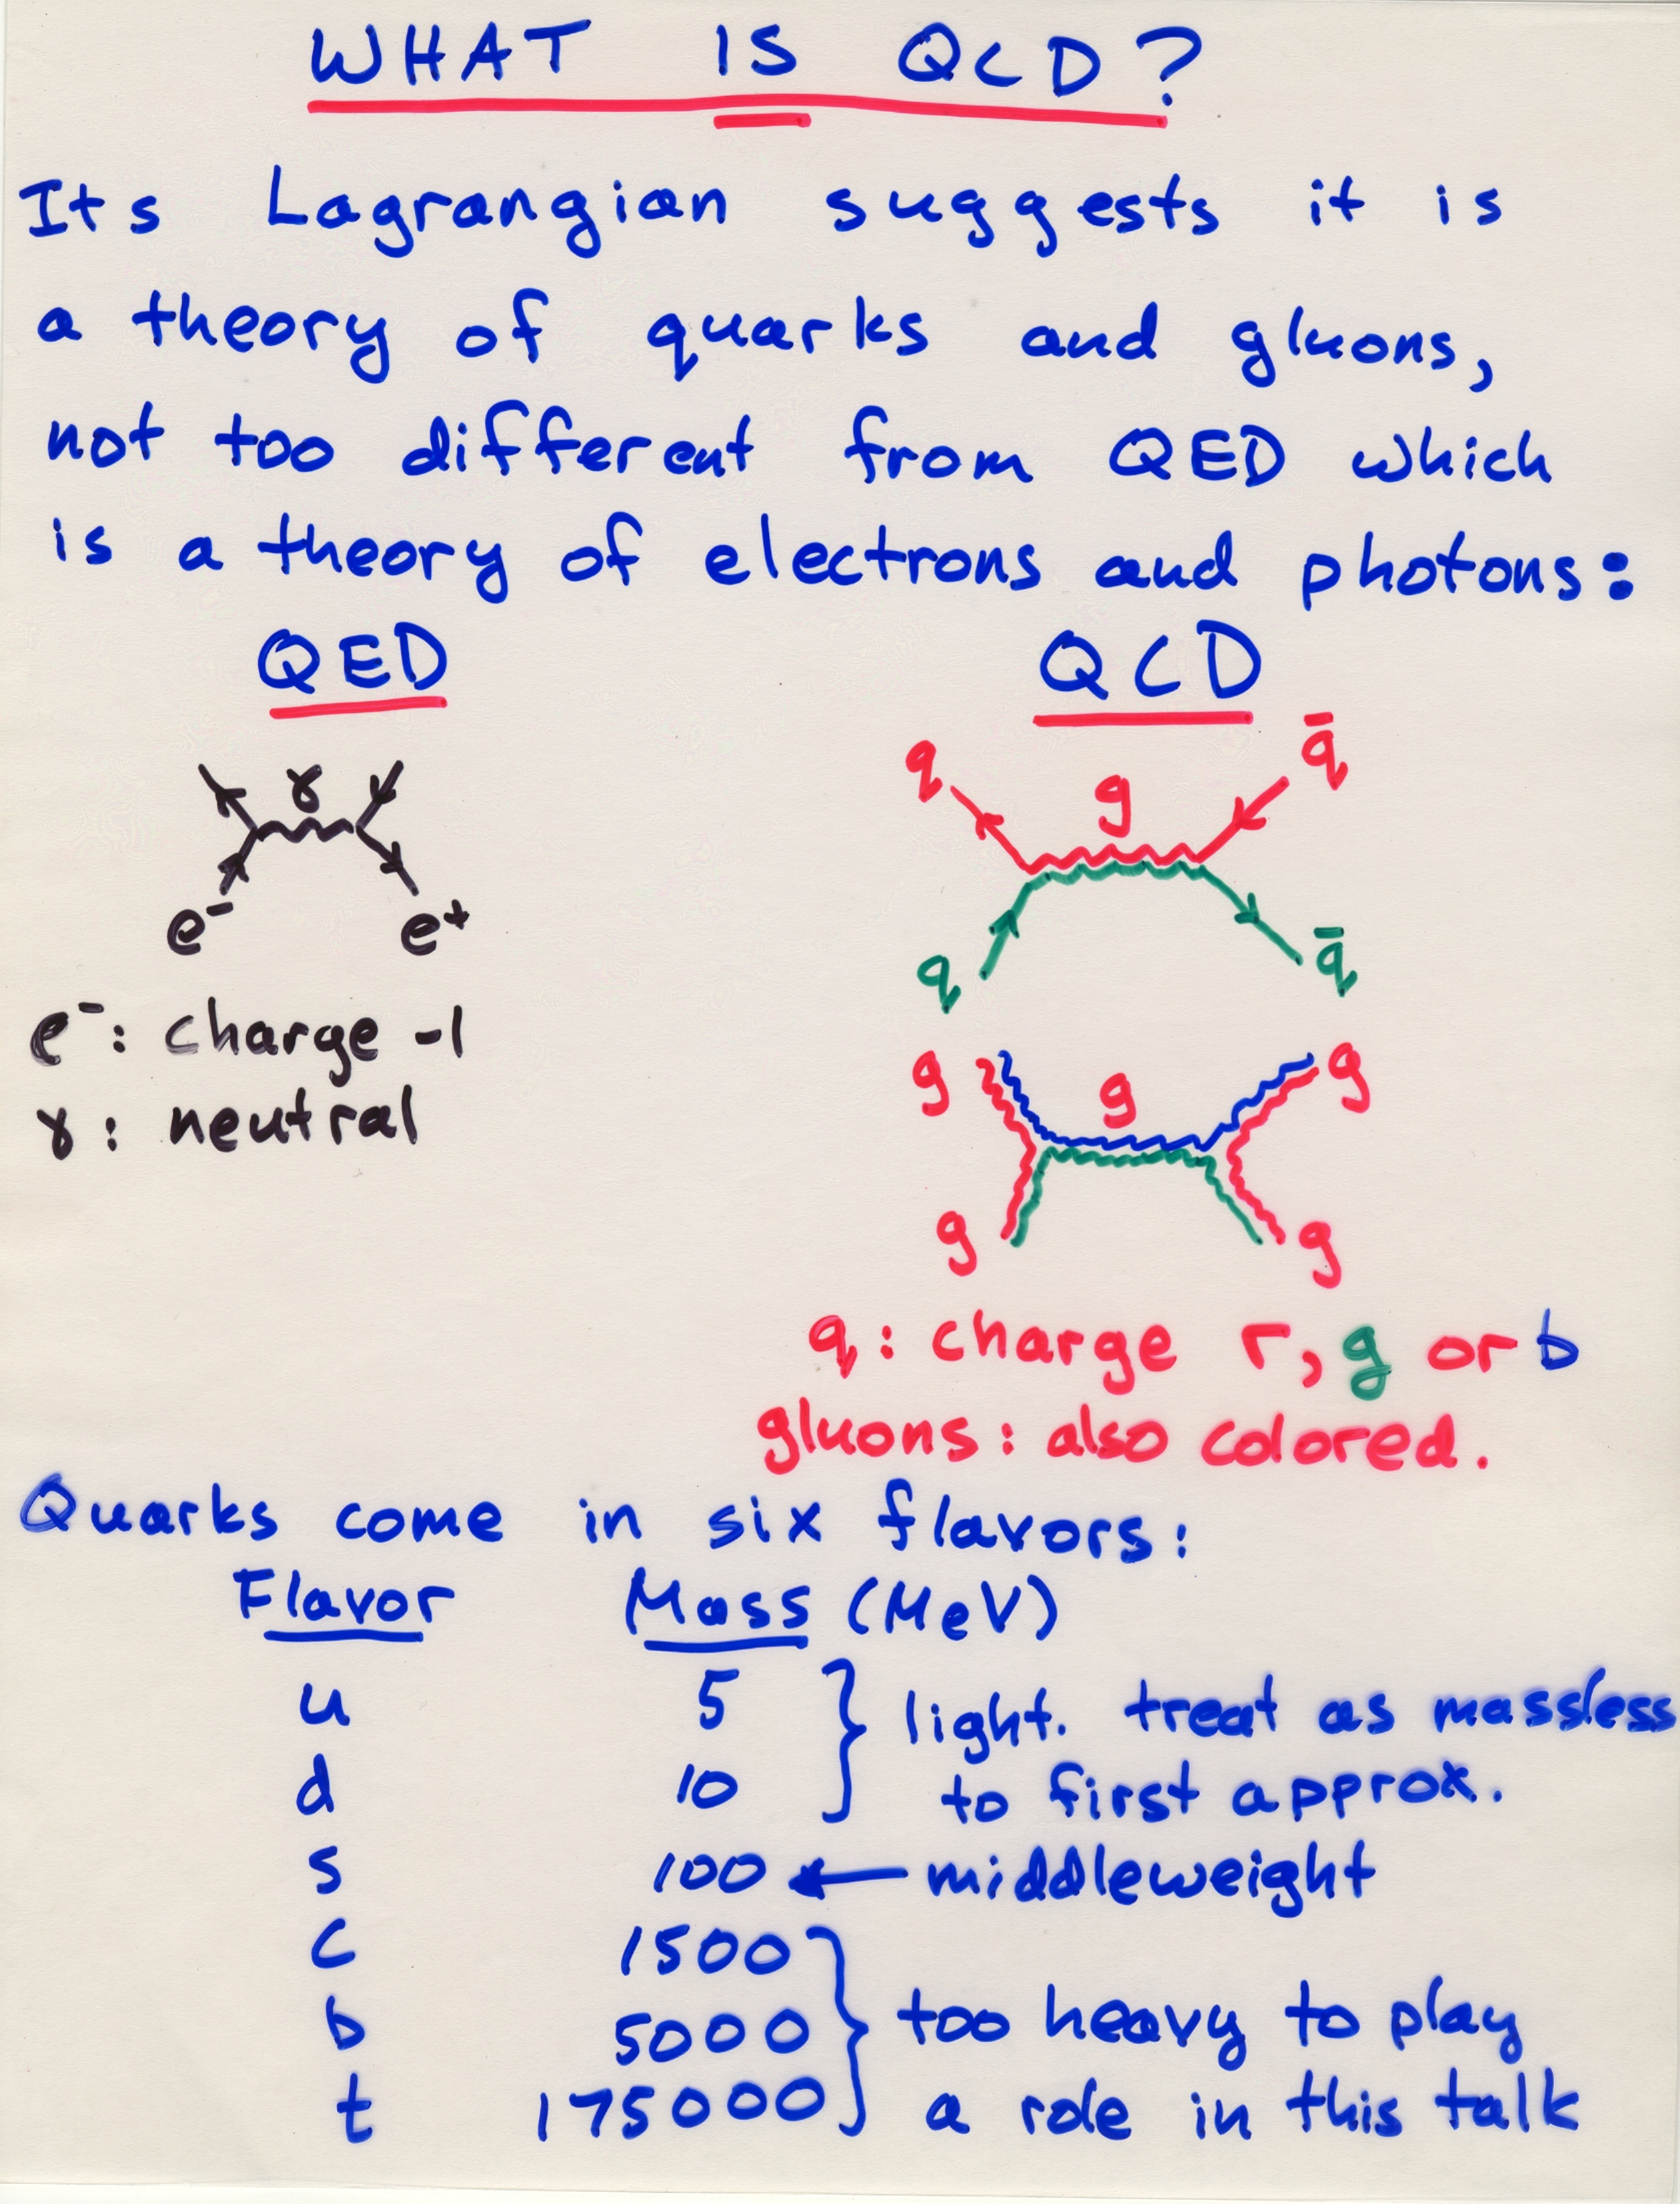 WHAT IS QCD?
Its Lagrangian suggests it is
a theory of quarks and gluons,
not too different from QED which
is a theory of electrons and photons:
QED
γ
e⁻ e⁺
e⁻: charge -1
γ: neutral
QCD
q g q̄
q q̄
g g g
g g
q: charge r, g or b
gluons: also colored.
Quarks come in six flavors:
Flavor Mass (MeV)
u 5 } light. treat as massless
d 10 to first approx.
s 100 ← middleweight
c 1500
b 5000 } too heavy to play
t 175000 a role in this talk